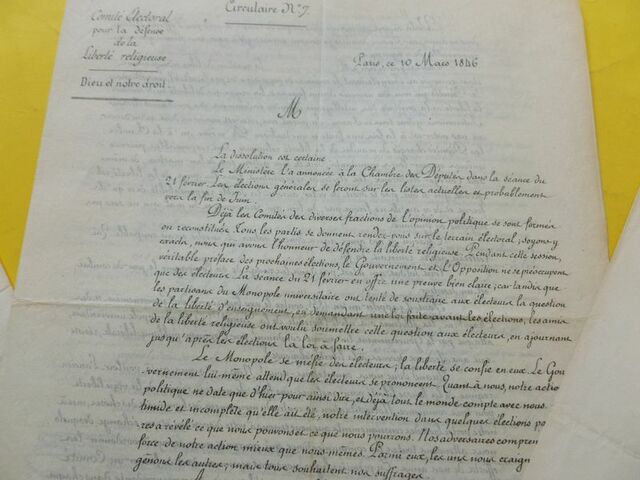 Circulaire N° 7
Comité Électoral
pour la défense
de la
Liberté religieuse
Dieu et notre droit
Paris, ce 10 Mars 1846
M
La dissolution est certaine
Le Ministère l'a annoncée à la Chambre des Députés dans la séance du
21 février. Les élections générales se feront sur les listes actuelles et probablement
vers la fin de Juin.
Déjà les Comités des diverses fractions de l'opinion politique se sont formés
ou reconstitués. Tous les partis se donnent rendez-vous sur le terrain électoral; soyons-y
exacts, nous qui avons l'honneur de défendre la liberté religieuse. Pendant cette session,
véritable préface des prochaines élections, le Gouvernement et l'Opposition ne se préoccupent
que des électeurs. La séance du 21 février en offre une preuve bien claire; car tandis que
les partisans du Monopole universitaire ont tenté de soustraire aux électeurs la question
de la liberté d'enseignement, en demandant une loi faite avant les élections, les amis
de la liberté religieuse ont voulu soumettre cette question aux électeurs, en ajournant
jusqu'après les élections la loi à faire.
Le Monopole se méfie des électeurs; la liberté se confie en eux. Le Gou
vernement lui-même attend que les électeurs se prononcent. Quant à nous, notre action
politique ne date que d'hier pour ainsi dire, et déjà tout le monde compte avec nous.
timide et incomplète qu'elle ait été, notre intervention dans quelques élections par
a révélé ce que nous pouvons et ce que nous pourrons. Nos adversaires compren
force de notre action mieux que nous-mêmes. Parmi eux, les uns nous craign
gênons les autres; mais tous souhaitent nos suffrages.